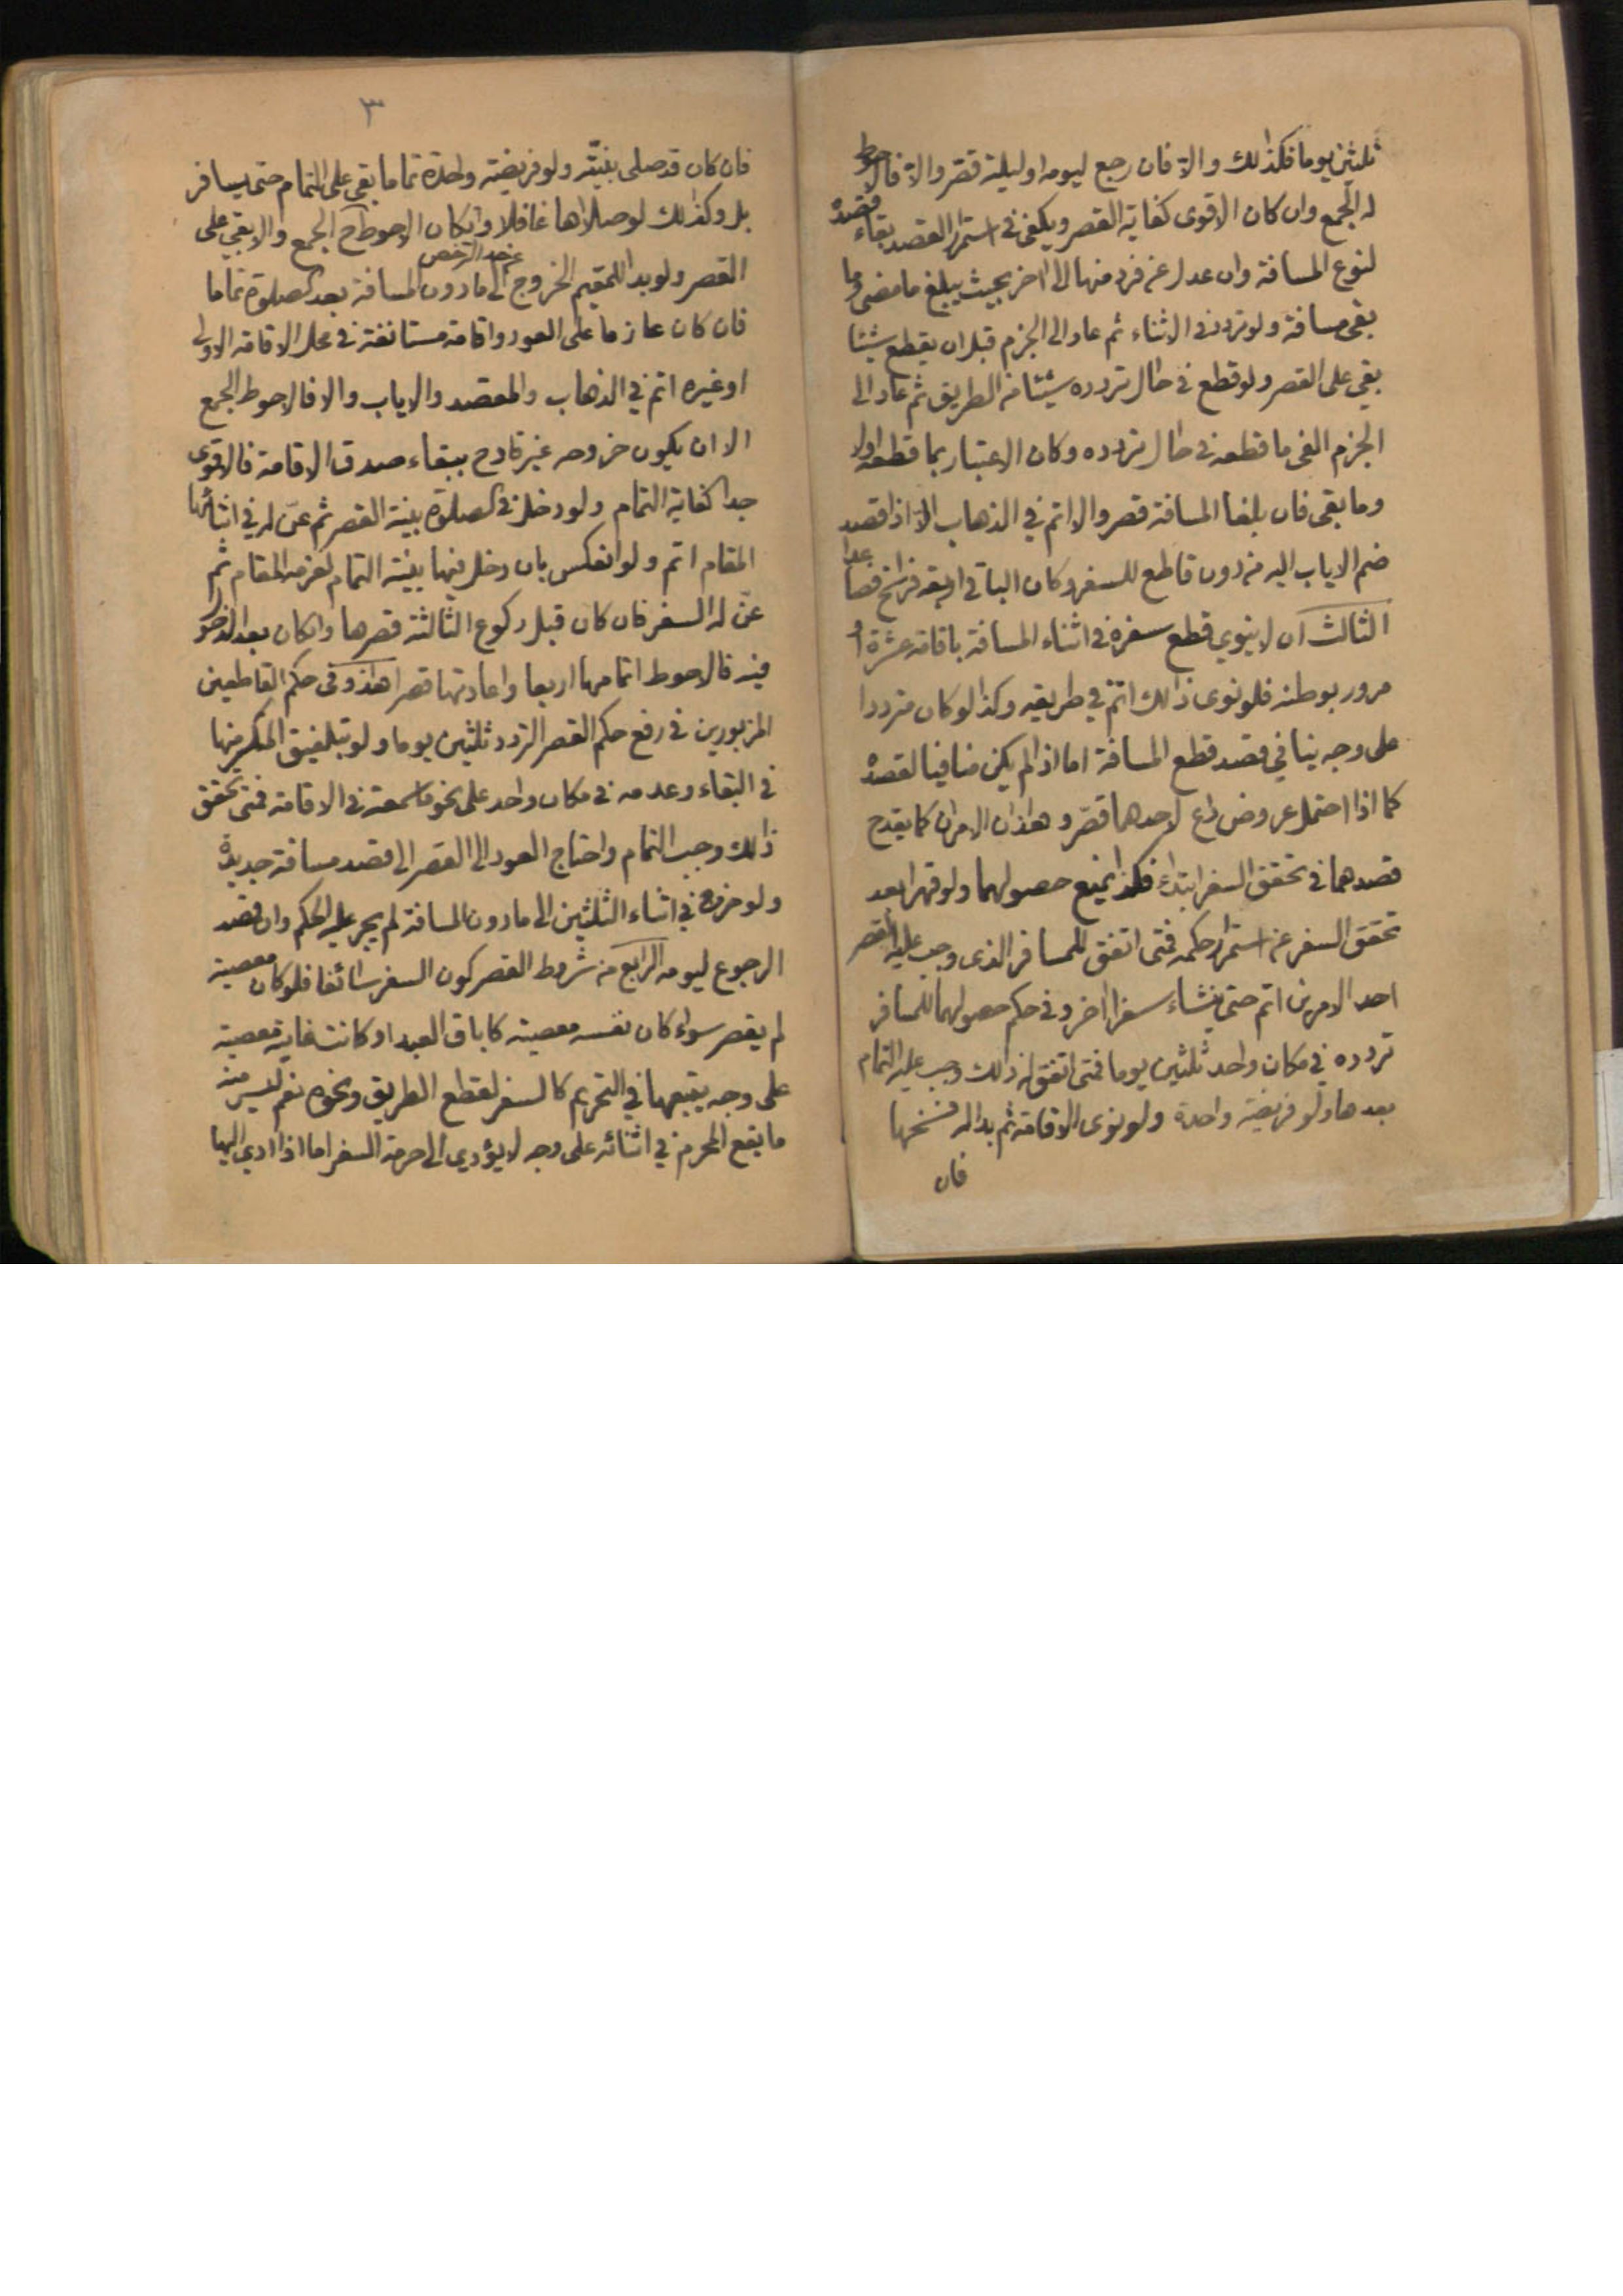 ثلثين يوما فكذلك والا فان رجع ليومه او ليلته قصر والا فالاحوط
له الجمع وان كان الاقوى كفاية القصر ويكفي في استمرار القصد بقاء قصده
لنوع المسافة وان عدل عن فرد منها الى اخر بحيث يبلغ ما مضى وما
بقى مسافة ولو تردد في الاثناء ثم عاد الى الجزم قبل ان يقطع شيئا
بقي على القصر ولو قطع في حال تردده شيئا من الطريق ثم عاد الى
الجزم الغى ما قطعه في حال تردده وكان الاعتبار بما قطعه اولا
وما بقى فان بلغا المسافة قصر والا اتم في الذهاب الا اذا قصد
ضم الاياب اليه من دون قاطع للسفر وكان الباقي اربعة فراسخ فصاعدا
الثالث ان لا ينوي قطع سفره في اثناء المسافة باقامة عشرة او
مرور بوطنه فلو نوى ذلك اتم في طريقه وكذا لو كان مترددا
على وجه ينافي قصد قطع المسافة اما اذا لم يكن منافيا لقصده
كما اذا احتمل عروض داع لاحدهما قصّر وهذان الامران كما يقدح
قصدهما في تحقق السفر ابتداء فكذا يمنع حصولهما ولو قهرا بعد
تحقق السفر عن استمرار حكمه فمتى اتفق للمسافر الذي وجب عليه القصر
احد الامرين اتم حتى ينشاء سفرا اخر وفي حكم حصولهما للمسافر
تردده في مكان واحد ثلثين يوما فمتى اتفق له ذلك وجب عليه التمام
بعدها ولو فريضة واحدة ولو نوى الاقامة ثم بدا له فسخها
فان
٣
فان كان قد صلى بنيّته ولو فريضة واحدة تماما بقي على التمام حتى يسافر
بل وكذلك لو صلاها غافلا وان كان الاحوط ح الجمع والا بقي على
القصر ولو بدا للمقيم الخروج عن حد الترخص الى ما دون المسافة بعد الصلوة تماما
فان كان عازما على العود واقامة مستانفة في محل الاقامة الاولى
او غيره اتم في الذهاب والمقصد والاياب والا فالاحوط الجمع
الا ان يكون خروجه غير قادح ببقاء صدق الاقامة فالاقوى
جدا كفاية التمام ولو دخل في الصلوة بنية القصر ثم عنّ له في اثنائها
المقام اتم ولو انعكس بان دخل فيها بنية التمام لعزمه المقام ثم
عنّ له السفر فان كان قبل ركوع الثالثة قصرها وان كان بعد الدخول
فيه فالاحوط اتمامها اربعا واعادتها قصرا هذا وفي حكم القاطعين
المزبورين في رفع حكم القصر التردد ثلثين يوما ولو بتلفيق المنكسر منها
في البقاء وعدمه في مكان واحد على نحو ما سمعته في الاقامة فمتى تحقق
ذلك وجب التمام واحتاج العود الى القصر الى قصد مسافة جديدة
ولو خرج في اثناء الثلثين الى ما دون المسافة لم يجر عليه الحكم وان قصد
الرجوع ليومه الرابع من شروط القصر كون السفر سائغا فلو كان معصية
لم يقصر سواء كان نفسه معصية كاباق العبد او كانت غايته معصية
على وجه يتبعها في التحريم كالسفر لقطع الطريق ونحوه نعم ليس منه
ما يقع المحرم في اثنائه على وجه لا يؤدي الى حرمة السفر اما اذا ادى اليها